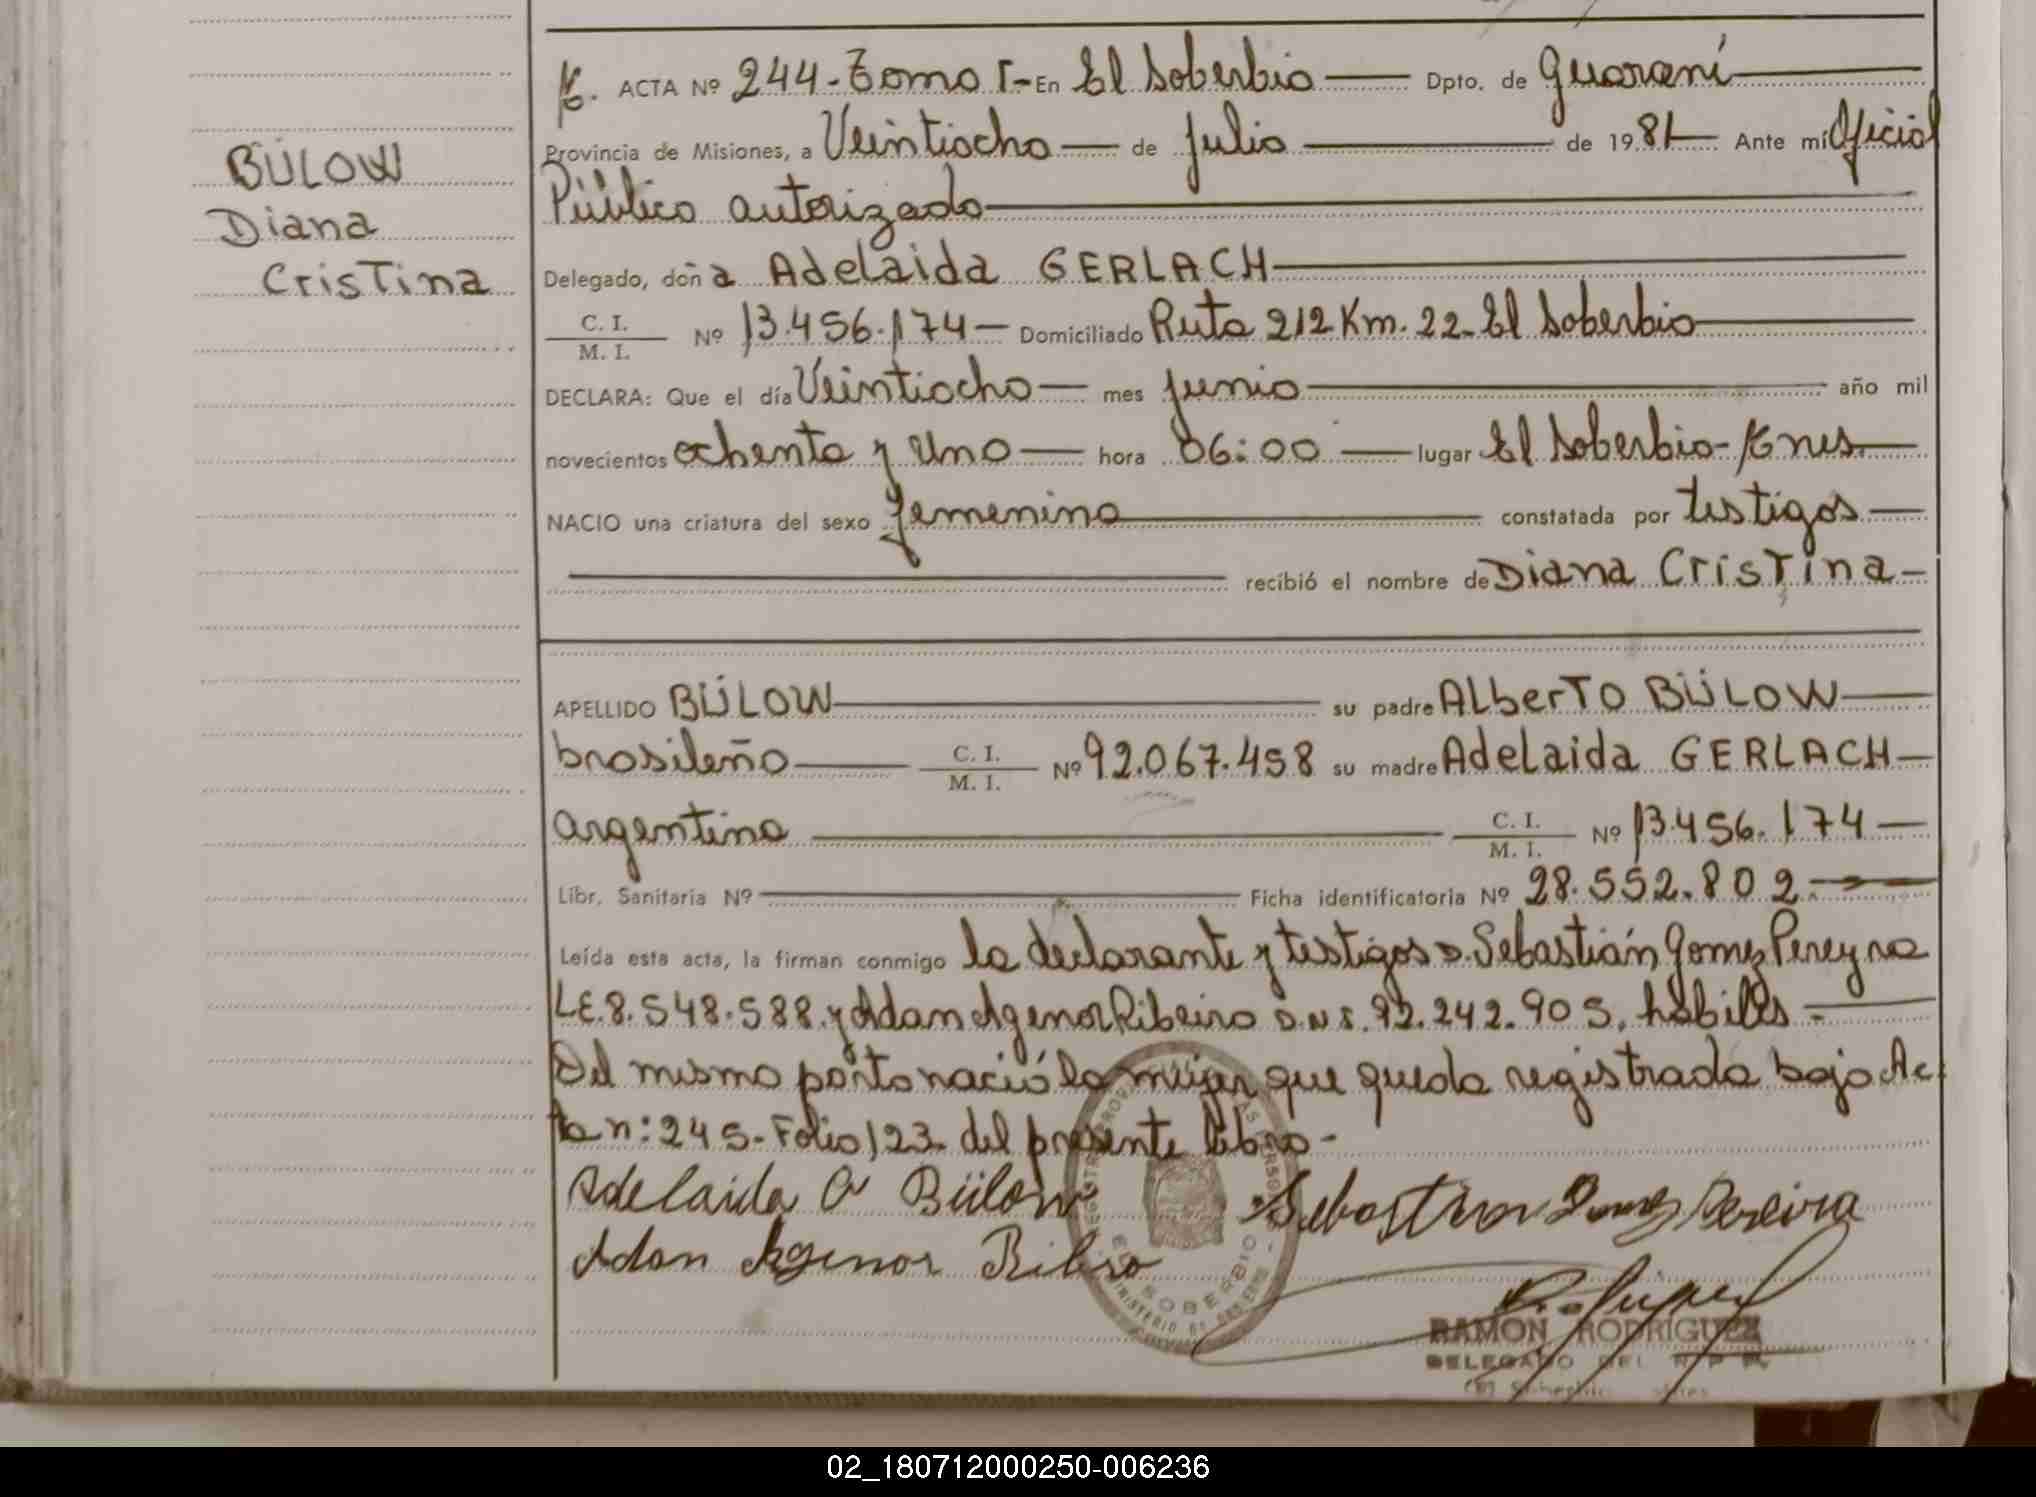 BÜLOW
Diana
Cristina
ACTA Nº 244-Tomo I- En El Soberbio Dpto. de Guaraní
Provincia de Misiones, a Veintiocho de Julio de 1981 Ante mí Oficial
Público autorizado
Delegado, doña Adelaida GERLACH
C. I.
M. I. Nº 13.456.174 Domiciliado Ruta 212 Km. 22-El Soberbio
DECLARA: Que el día Veintiocho mes Junio año mil
novecientos ochenta y Uno hora 06:00 lugar El Soberbio-Mnes.
NACIO una criatura del sexo femenino constatada por testigos
recibió el nombre de Diana Cristina
APELLIDO BÜLOW su padre Alberto BÜLOW
brasileño C. I. M. I. Nº 92.067.458 su madre Adelaida GERLACH
argentina C. I. M. I. Nº 13.456.174
Libr. Sanitaria Nº Ficha identificatoria Nº 28.552.802
Leída esta acta, la firman conmigo la declarante y testigos D. Sebastián Gomez Pereyra
LE.8.548.588. y Adan Agenor Ribeiro D.N.I. 92.242.905. hábiles
Del mismo parto nació la mujer que queda registrada bajo Ac-
ta n: 245-Folio 123 del presente libro-
Adelaida G Bülow Sebastian Gomez Pereira
Adan Agenor Ribero
EL SOBERBIO
RAMON RODRIGUEZ
DELEGADO DEL R P P.
02_180712000250-006236